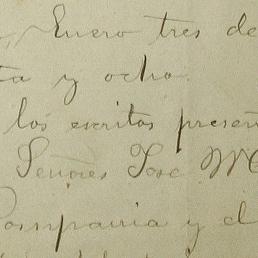 Enero tres de
ta y ocho.
los escritos presen
Señores Jose M
Compañia y d